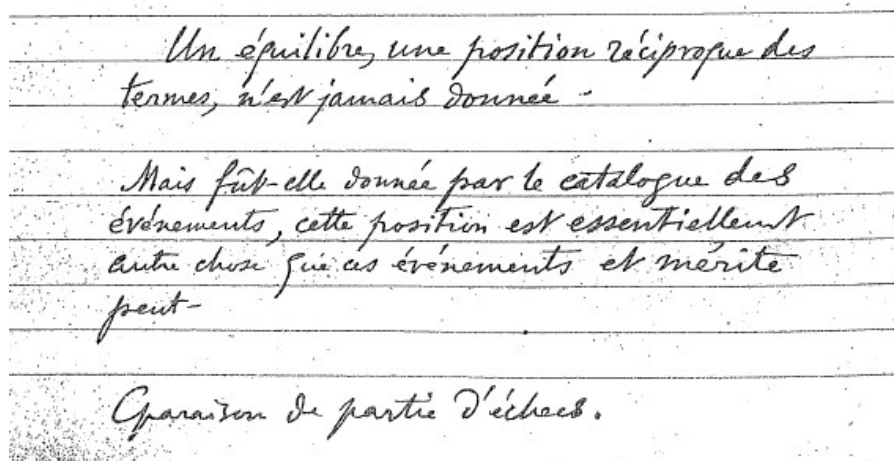 Un équilibre, une position réciproque des
termes, n'est jamais donnée -
Mais fût-elle donnée par le catalogue des
événements, cette position est essentiellemt
autre chose que ces événements et mérite
peut-
Cparaison de partie d'échecs.